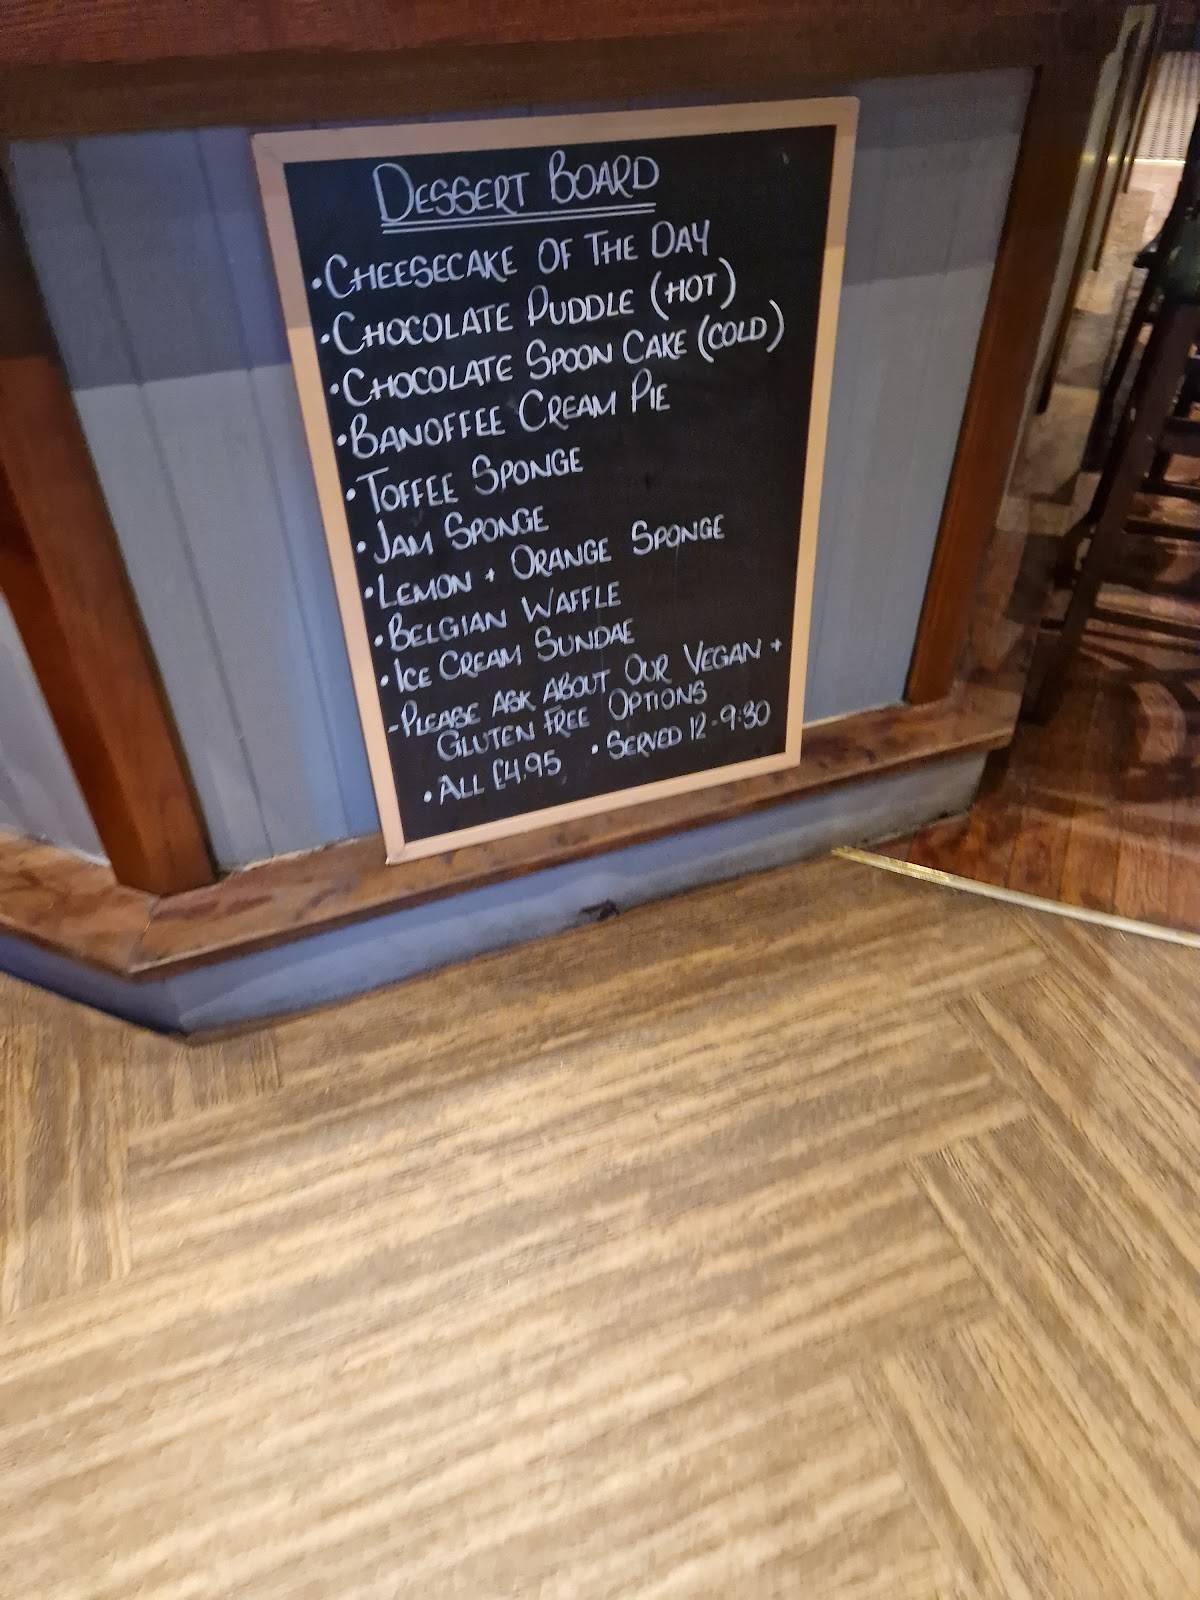 DESSERT BOARD
• CHEESECAKE OF THE DAY
• CHOCOLATE PUDDLE (HOT)
• CHOCOLATE SPOON CAKE (COLD)
• BANOFFEE CREAM PIE
• TOFFEE SPONGE
• JAM SPONGE
• LEMON + ORANGE SPONGE
• BELGIAN WAFFLE
• ICE CREAM SUNDAE
- PLEASE ASK ABOUT OUR VEGAN +
GLUTEN FREE OPTIONS
• ALL £4.95 • SERVED 12-9:30